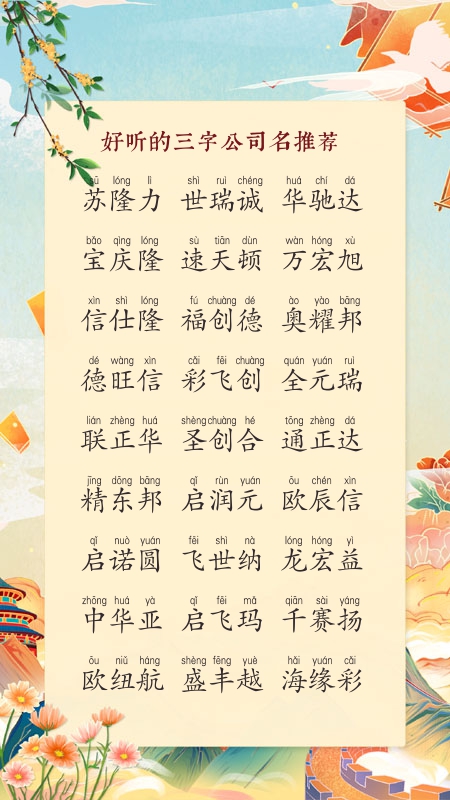 好听的三字公司名推荐
sū lóng lì shì ruì chéng huá chí dá
苏隆力 世瑞诚 华驰达
bǎo qìng lóng sù tiān dùn wàn hóng xù
宝庆隆 速天顿 万宏旭
xìn shì lóng fú chuàng dé ào yào bāng
信仕隆 福创德 奥耀邦
dé wàng xìn cǎi fēi chuàng quán yuán ruì
德旺信 彩飞创 全元瑞
lián zhèng huá shèng chuàng hé tōng zhèng dá
联正华 圣创合 通正达
jīng dōng bāng qǐ rùn yuán ōu chén xìn
精东邦 启润元 欧辰信
qǐ nuò yuán fēi shì nà lóng hóng yì
启诺圆 飞世纳 龙宏益
zhōng huá yà qǐ fēi mǎ qiān sài yáng
中华亚 启飞玛 千赛扬
ōu niǔ háng shèng fēng yuè hǎi yuán cǎi
欧纽航 盛丰越 海缘彩